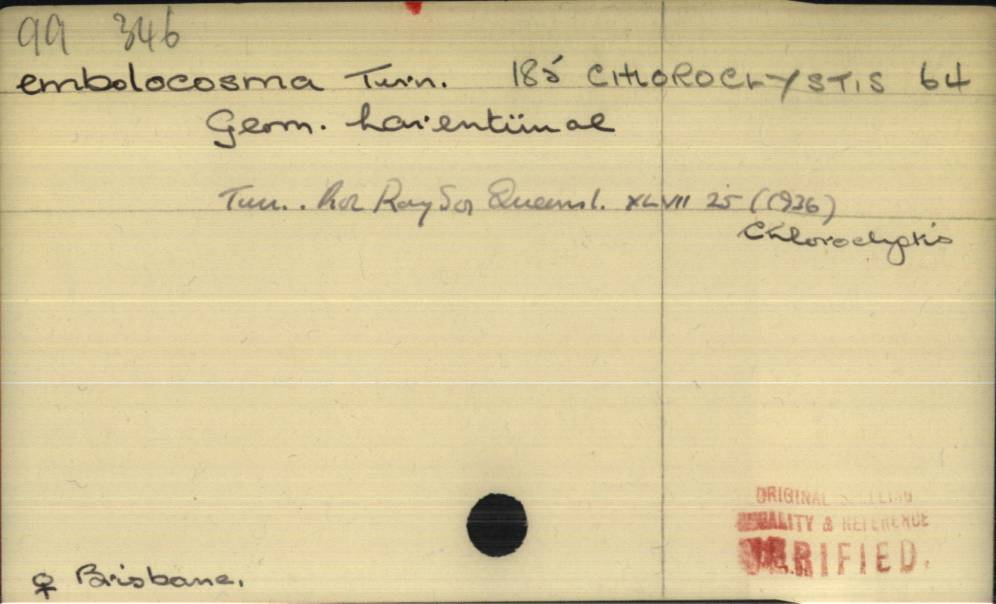 99 346
embolocosma Turn. 185 CHLOROCLYSTIS 64
Geom. Larentiinae
Turn. Roy Soc Queensl. XLVII 25 (1936)
Chloroclystis
ORIGINAL SPELLING
LOCALITY & REFERENCE
VERIFIED.
♀ Brisbane.